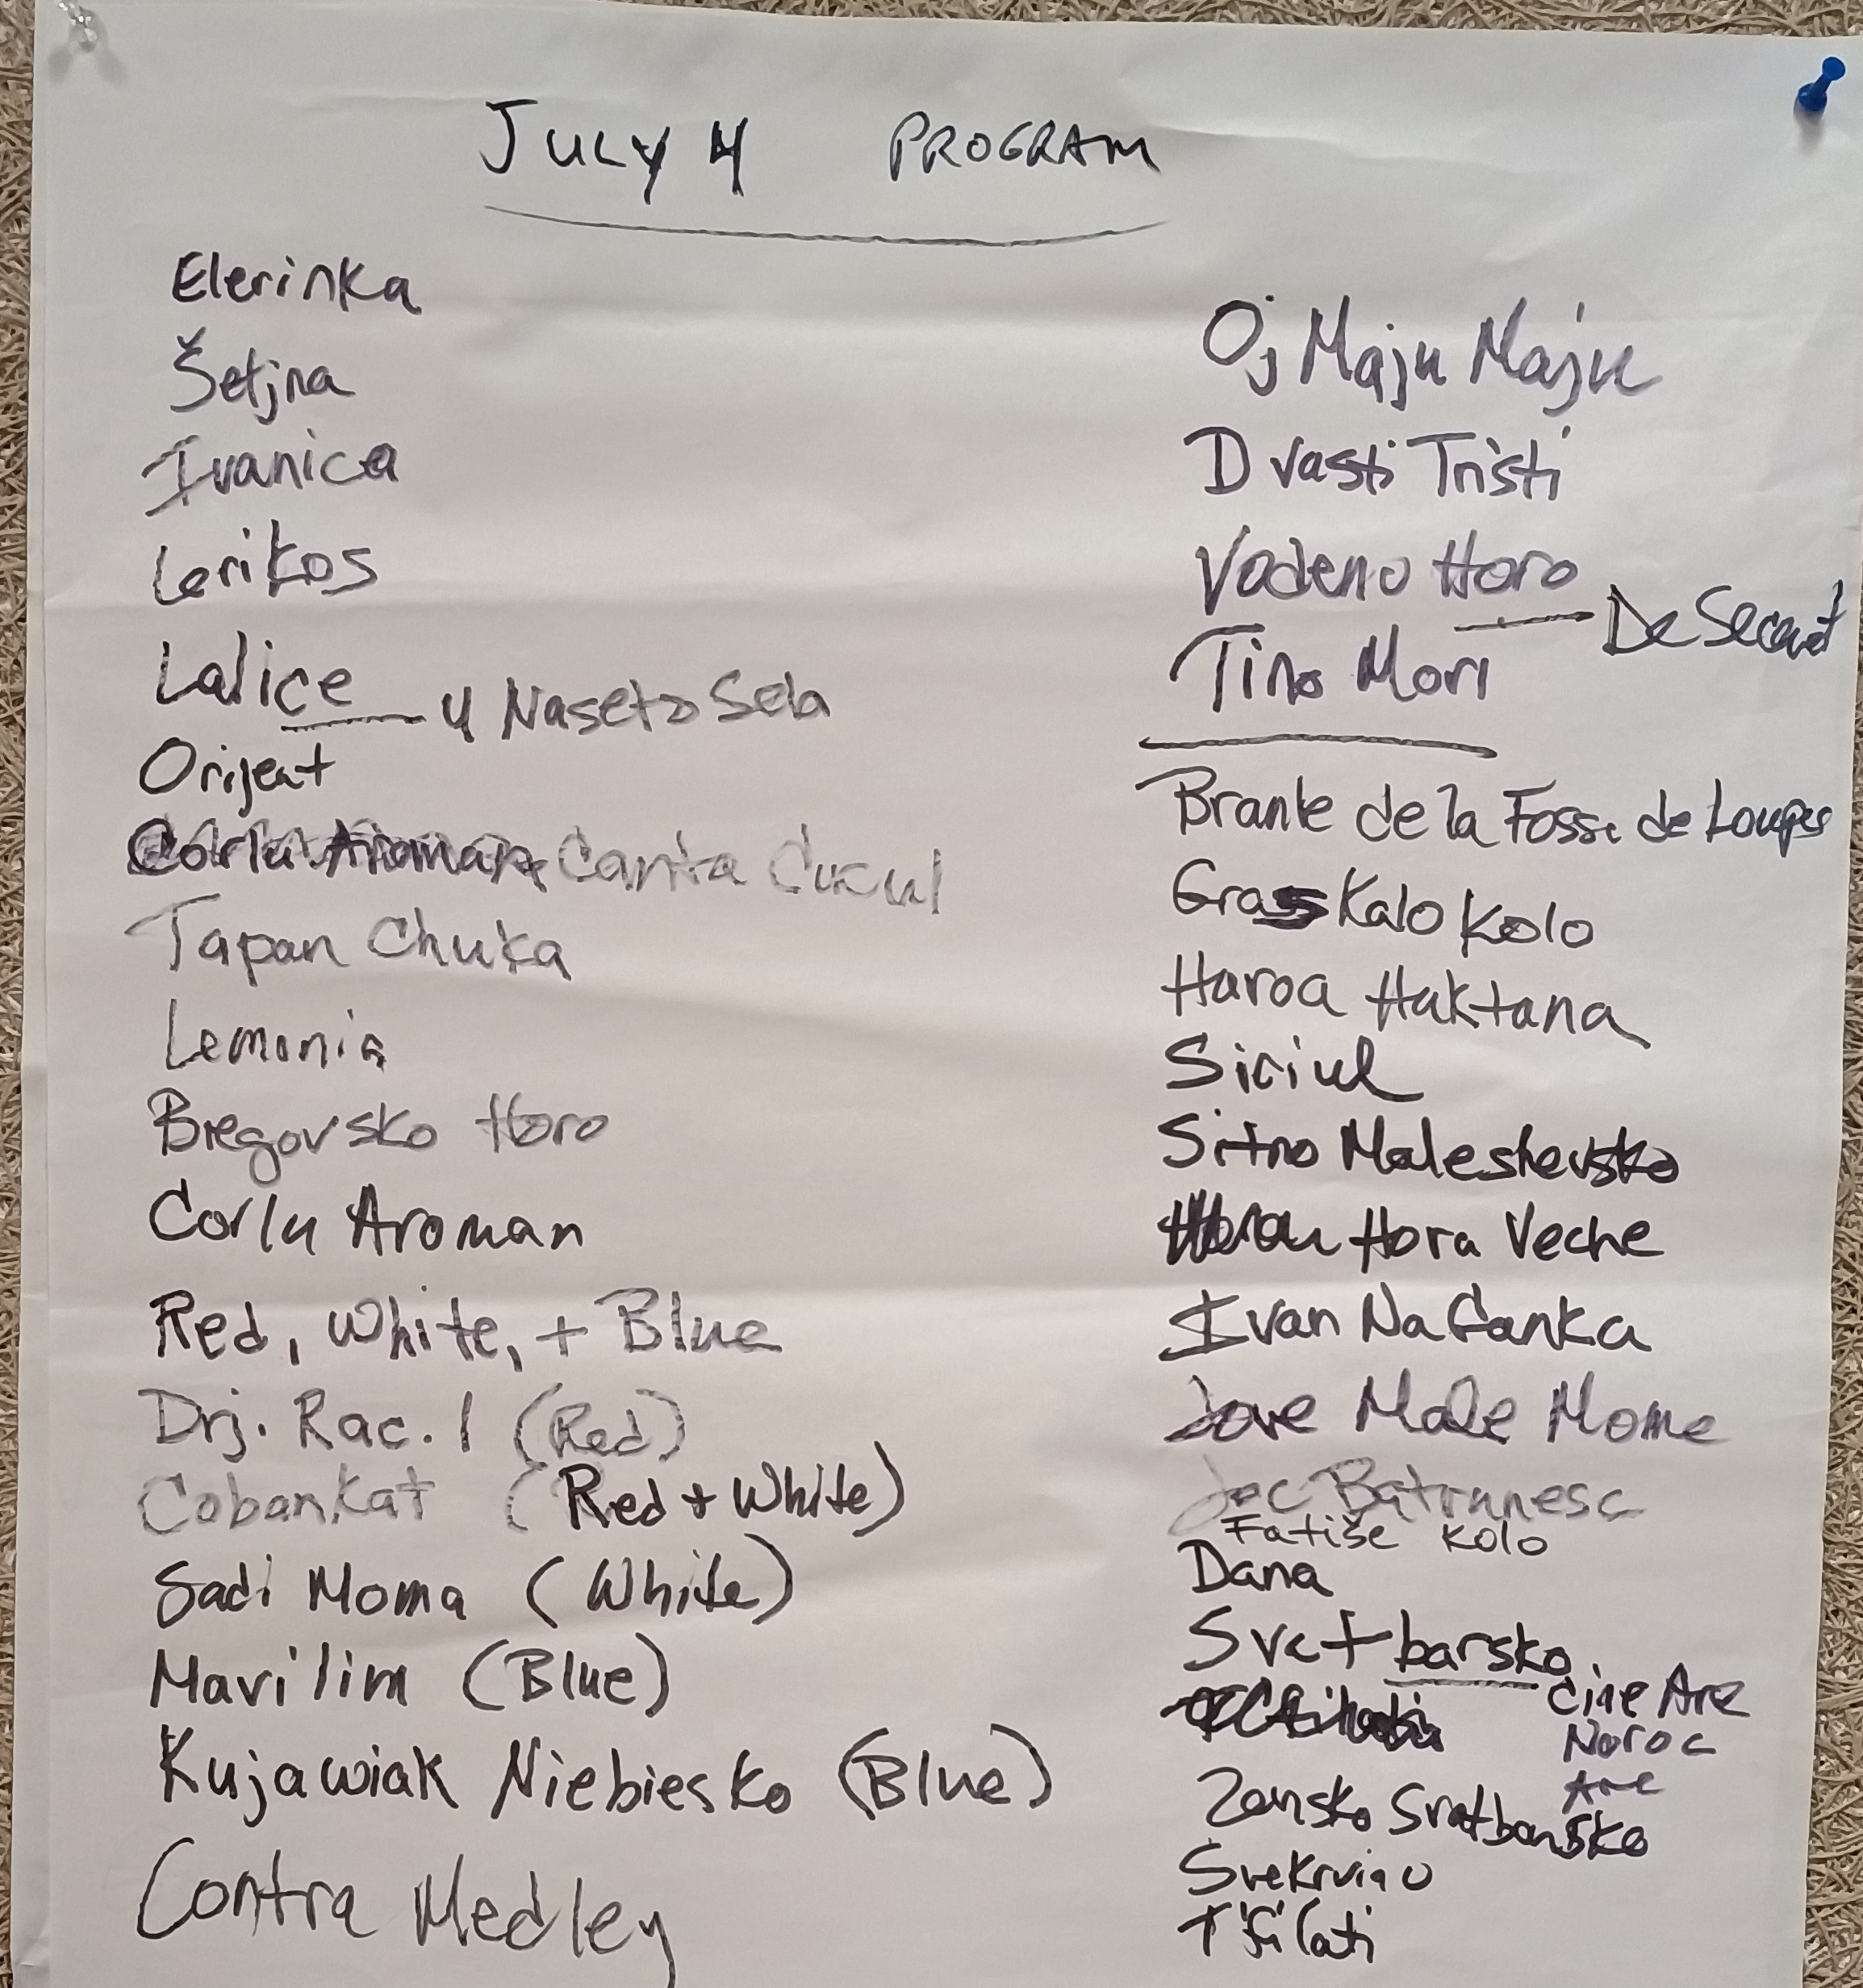 JULY 4 PROGRAM
Elerinka
Šetjna
Ivanica
Lerikos
Lalice
U Naseto Selo
Orijent
Corlu Aroman Canta Cucul
Tapan Chuka
Lemonia
Bregovsko Horo
Corlu Aroman
Red, White, + Blue
Drj. Rac. 1 (Red)
Cobankat (Red + White)
Sadi Moma (White)
Mavilim (Blue)
Kujawiak Niebiesko (Blue)
Contra Medley
Oj Maju Maju
Dvasti Tristi
Vodeno Horo
De Secerat
Tino Mori
Branle de la Fosse de Loups
Gras Kalo Kolo
Haroa Haktana
Siriul
Sitno Maleshevsko
Hora Veche
Ivan Na Canka
Jove Male Mome
Joc Batranesc
Fatiše Kolo
Dana
Svatbarsko
Cine Are
Noroc
Are
Zensko Svatbarsko
Svekrvino